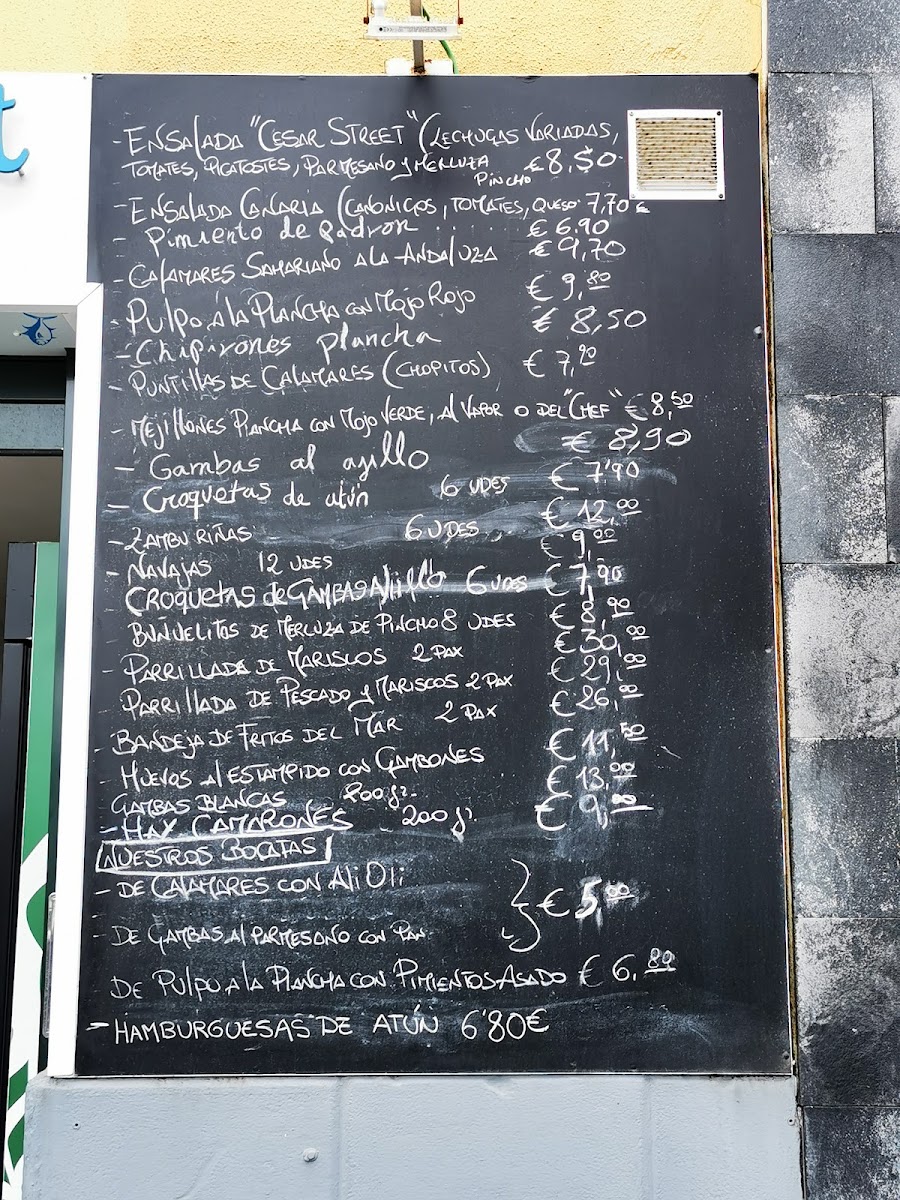 t
- ENSALADA "CESAR STREET" (LECHUGAS VARIADAS,
TOMATES, PICATOSTES, PARMESANO y MERLUZA PINCHO € 8,50
- ENSALADA CANARIA (CANONIGOS, TOMATES, QUESO 7,70 €
- Pimiento de Padron ...... € 6.90
- CALAMARES SAHARIANO A LA ANDALUZA € 9,70
- PULPO A LA PLANCHA CON MOJO ROJO € 9,80
- Chipirones plancha € 8,50
- PUNTILLAS DE CALAMARES (CHOPITOS) € 7,90
- MEJILLONES PLANCHA CON MOJO VERDE, AL VAPOR O DEL "CHEF" € 8,50
- Gambas al ajillo € 8,90
- Croquetas de atún 6 UDES € 7'90
- ZAMBURIÑAS 6 UDES € 12,00
- NAVAJAS 12 UDES € 9,00
CROQUETAS de GAMBAS AJILLO 6 UDES € 7,90
BUÑUELITOS DE MERLUZA DE PINCHO 8 UDES € 8,90
- PARRILLADA DE MARISCOS 2 PAX € 30,00
PARRILLADA DE PESCADO y MARISCOS 2 PAX € 29,00
- BANDEJA DE FRITOS DEL MAR 2 PAX € 26,00
- HUEVOS AL ESTAMPIDO CON GAMBONES € 11,50
GAMBAS BLANCAS 200 gr. € 13,00
- HAY CAMARONES 200 gr. € 9,00
NUESTROS BOCATAS
- DE CALAMARES CON ALIOLI
} € 5,00
- DE GAMBAS AL PARMESANO CON PAN
DE PULPO A LA PLANCHA CON PIMIENTOS ASADO € 6,80
- HAMBURGUESAS DE ATÚN 6'80€